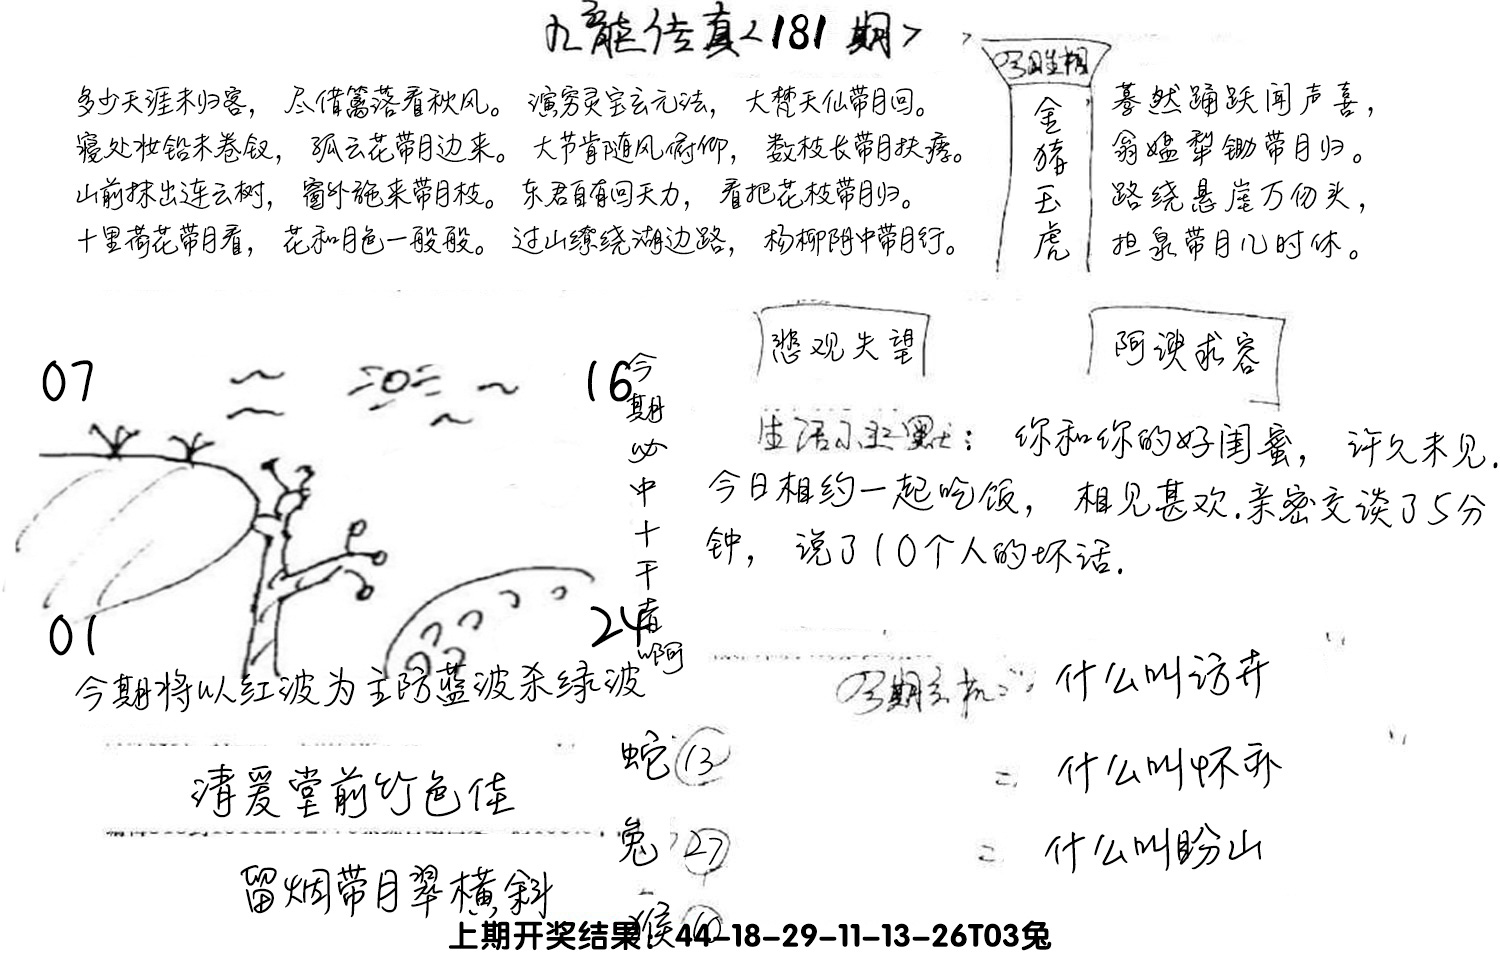 九龍传真<181期>
多少天涯未归客，尽借篱落看秋风。演穷灵宝玄元法，大梵天仙带月回。
寝处妆铅未卷钗，孤云花带月边来。大节肯随风俯仰，数枝长带月扶疏。
山前抹出连云树，窗外施来带月枝。东君自有回天力，看把花枝带月归。
十里荷花带月看，花和月色一般般。过山缭绕湖边路，杨柳阴中带月行。
今日生相
金猪玉虎
蓦然踊跃闻声喜，
翁媪犁锄带月归。
路绕悬崖万仞头，
担泉带月几时休。
悲观失望
阿谀求容
07
16
01
24
今期必中十干者啊
生活小幽默：你和你的好闺蜜，许久未见.
今日相约一起吃饭，相见甚欢.亲密交谈了5分
钟，说了10个人的坏话.
今期将以红波为主防蓝波杀绿波
今期玄机
什么叫访卉
= 什么叫怀乔
= 什么叫盼山
清爱堂前竹色佳
留烟带月翠横斜
蛇 13
兔 27
猴
上期开奖结果 44-18-29-11-13-26T03兔